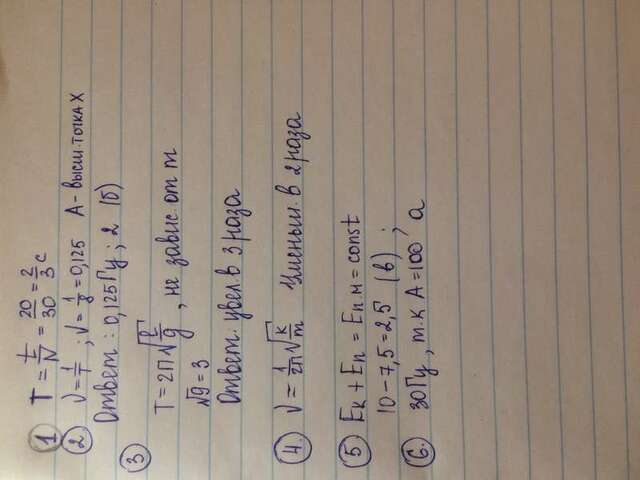 1 T = t/N = 20/30 = 2/3 с
2 ν = 1/T ; ν = 1/8 = 0,125 А - высш. точка X
Ответ : 0,125 Гц ; 2 (б)
3
T = 2π√(l/g) , не завис. от m
√9 = 3
Ответ. увел. в 3 раза
4. ν = 1/2π √(k/m) Уменьш. в 2 раза
5 Eк + Eп = Eп.м = const
10 - 7,5 = 2,5 (в) ;
6. 30 Гц , т.к А = 100 а